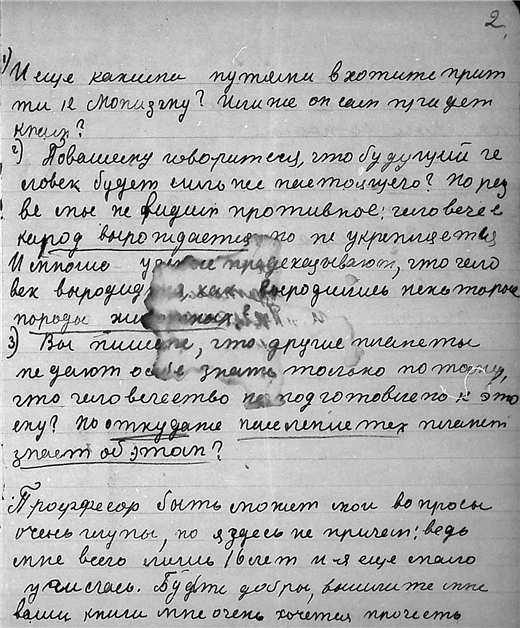 2.
1) И еще какими путями вхотите прит
ти к Монизму? Или же он сам придет
к нам?
2) Повашему говорится, что будущий че
ловек будет сильнее настоящего? Но раз
ве мы не видим противное: человечес
кий род вырождается, но не укрепляется
И многие ученые предсказывают, что чело
век выродидтся, как выродились некоторые
породы животных?
3) Вы пишете, что другие планеты
не дают о себе знать только потому,
что человечество не подготовлено к это
му? Но откуда же население тех планет
знает об этом?
Проффесор быть может мои вопросы
очень глупы, но я здесь не причем: ведь
мне всего лишь 16 лет и я еще мало
училась. Будьте добры, вышлите мне
ваши книги мне очень хочется прочесть